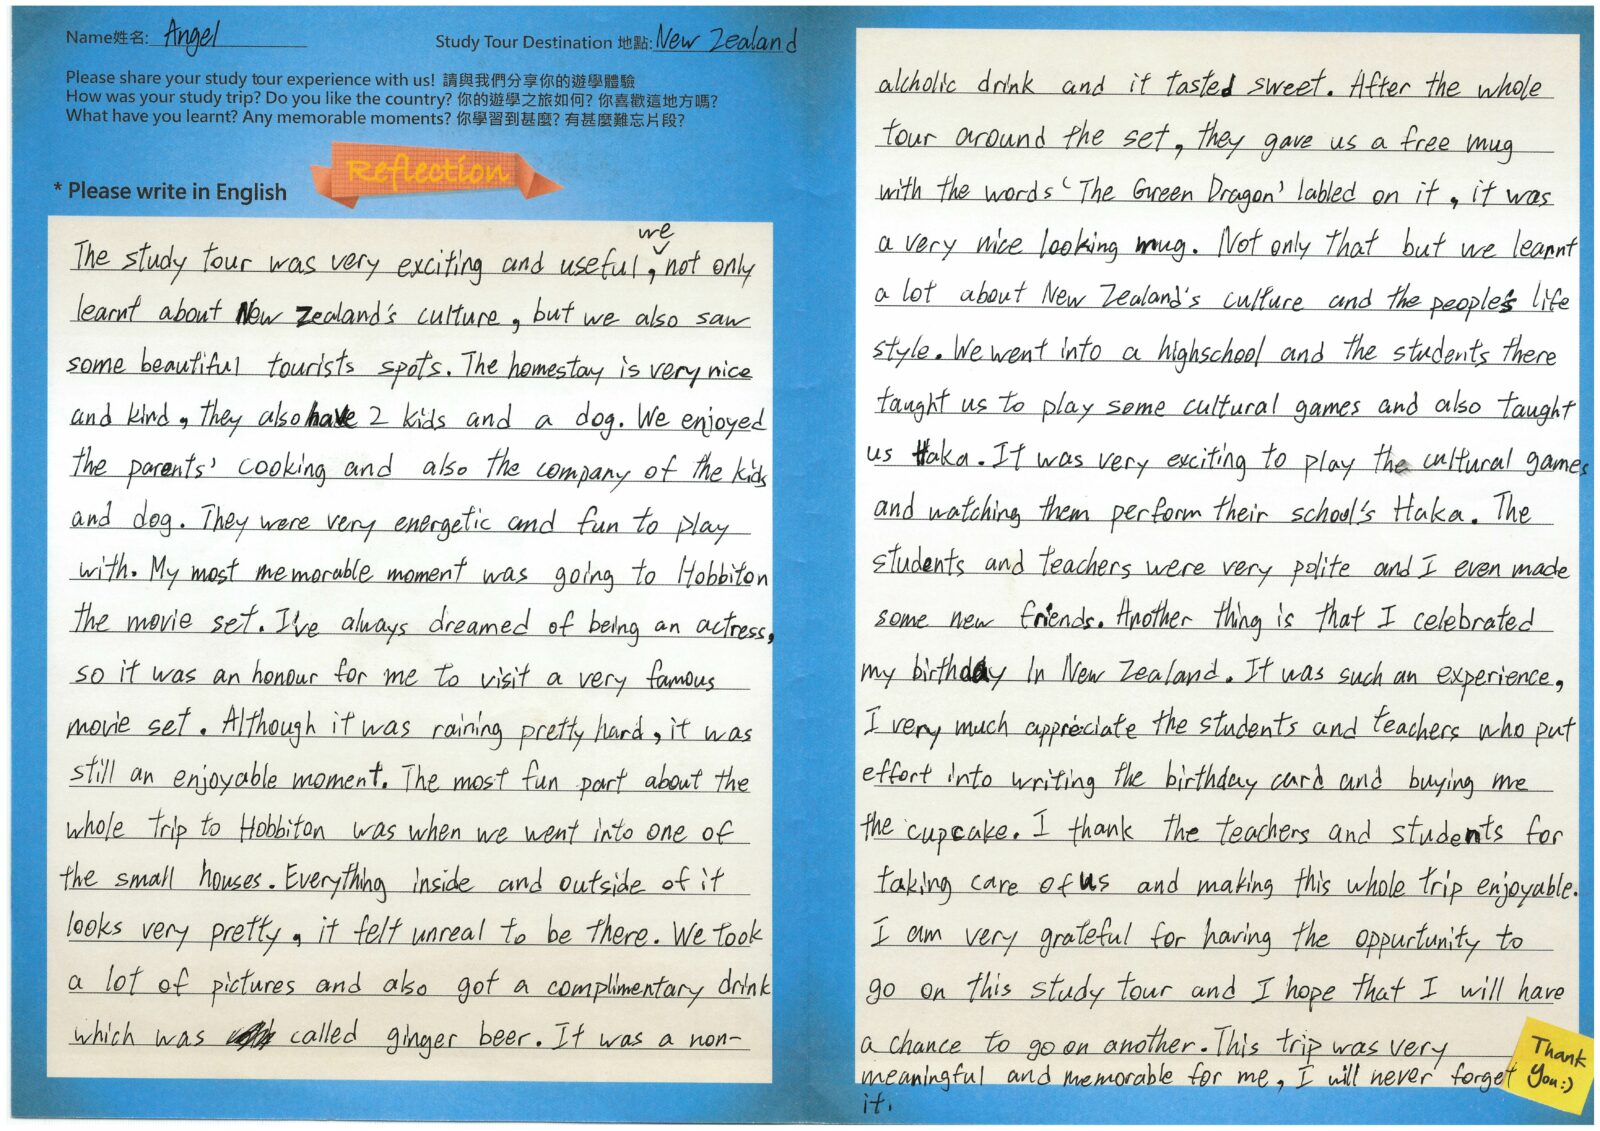 Name姓名: Angel
Study Tour Destination 地點: New Zealand
Please share your study tour experience with us! 請與我們分享你的遊學體驗
How was your study trip? Do you like the country? 你的遊學之旅如何? 你喜歡這地方嗎?
What have you learnt? Any memorable moments? 你學習到甚麼? 有甚麼難忘片段?
Reflection
* Please write in English
we
The study tour was very exciting and useful, not only
learnt about New Zealand's culture, but we also saw
some beautiful tourists spots. The homestay is very nice
and kind, they also have 2 kids and a dog. We enjoyed
the parents' cooking and also the company of the kids
and dog. They were very energetic and fun to play
with. My most memorable moment was going to Hobbiton
the movie set. I've always dreamed of being an actress,
so it was an honour for me to visit a very famous
movie set. Although it was raining pretty hard, it was
still an enjoyable moment. The most fun part about the
whole trip to Hobbiton was when we went into one of
the small houses. Everything inside and outside of it
looks very pretty, it felt unreal to be there. We took
a lot of pictures and also got a complimentary drink
which was called ginger beer. It was a non-
alcholic drink and it tasted sweet. After the whole
tour around the set, they gave us a free mug
with the words 'The Green Dragon' labled on it, it was
a very nice looking mug. Not only that but we learnt
a lot about New Zealand's culture and the people's life
style. We went into a highschool and the students there
taught us to play some cultural games and also taught
us Haka. It was very exciting to play the cultural games
and watching them perform their school's Haka. The
students and teachers were very polite and I even made
some new friends. Another thing is that I celebrated
my birthday In New Zealand. It was such an experience,
I very much appreciate the students and teachers who put
effort into writing the birthday card and buying me
the cupcake. I thank the teachers and students for
taking care of us and making this whole trip enjoyable.
I am very grateful for having the oppurtunity to
go on this study tour and I hope that I will have
a chance to go on another. This trip was very
meaningful and memorable for me, I will never forget
it.
Thank
You:)